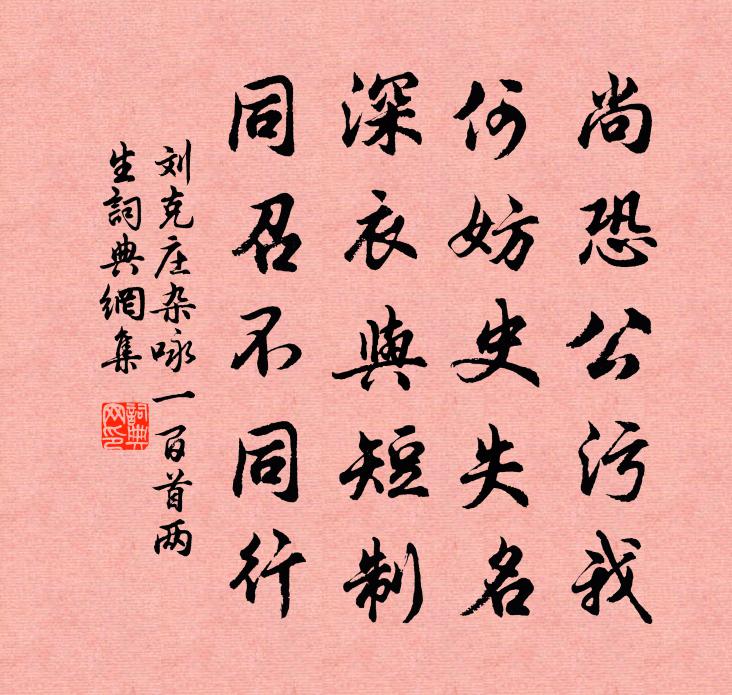 尚恐公污我
何妨史失名
深衣與短制
同召不同行
刘克庄杂咏一百首两
生詞典網集
詞典网印